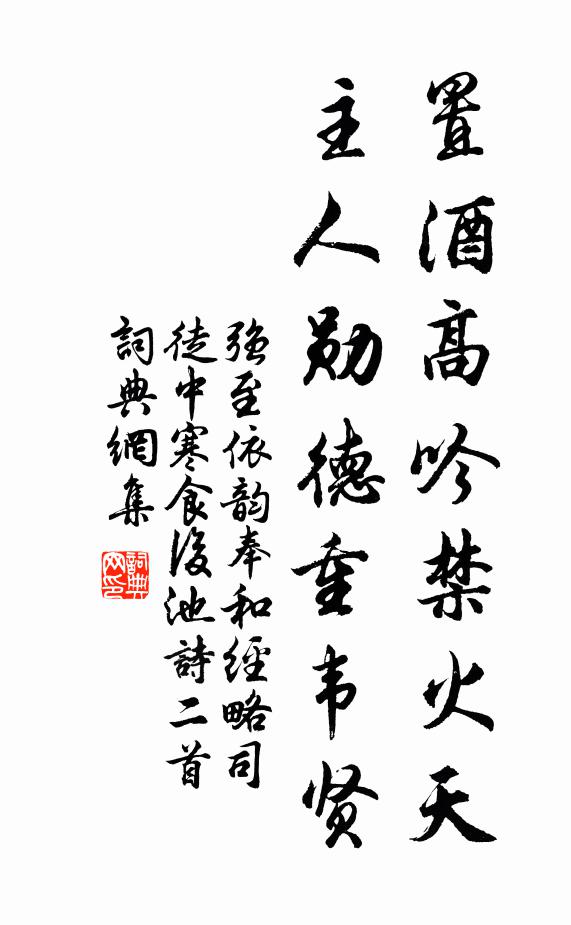 置酒高吟禁火天
主人勋德重韦贤
強至依韵奉和經略司
徒中寒食後池詩二首
詞典網集
詞典網印